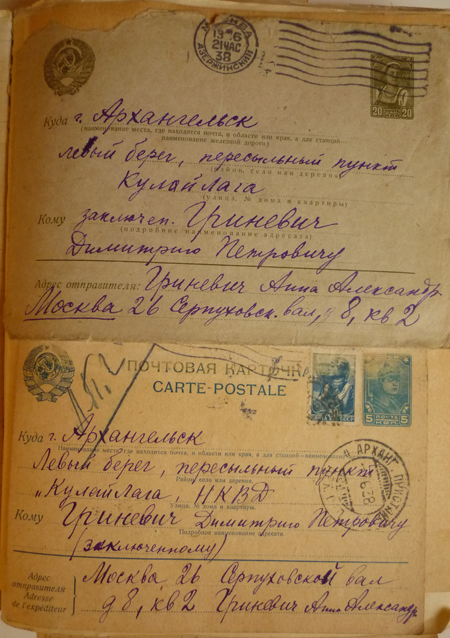 МОСКВА
13 6
21 ЧАС
38
ДЗЕРЖИНСКИЙ
20 20
Куда г. Архангельск
(наименование места, где находится почта, и области или края, а для станций
наименование железной дороги)
левый берег, пересыльный пункт
(район, село или деревня)
Кулойлага
(улица, № дома и квартиры)
Кому заключен. Гриневич
(подробное наименование адресата)
Димитрию Петровичу
Адрес отправителя: Гриневич Анна Александр.
Москва 26 Серпуховск. вал, 8, кв 2
ПОЧТОВАЯ КАРТОЧКА
CARTE-POSTALE
5 5
Куда г. Архангельск
Наименование места, где находится почта, и области или края, а для станций
Левый берег, пересыльный пункт
Район, село или деревня
"Кулойлага", НКВД
Улица, № дома и квартиры
Кому Гриневич Димитрию Петровичу
(заключенному)
Подробное наименование адресата
АРХАНГ
6 38
Адрес отправителя
Adresse de l'expéditeur
Москва 26 Серпуховской вал
д 8, кв 2 Гриневич Анна Александр.